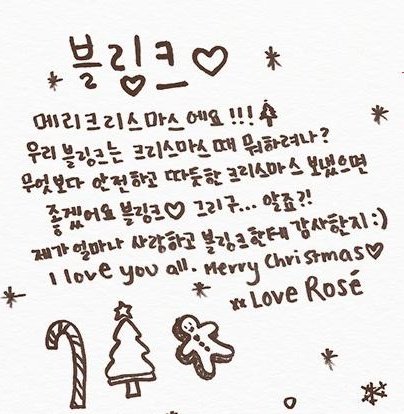 블링크♡
메리크리스마스에요!!!
우리 블링크는 크리스마스 때 뭐하려나?
무엇보다 안전하고 따듯한 크리스마스 보냈으면
좋겠어요 블링크♡ 그리구... 알죠?!
제가 얼마나 사랑하고 블링크한테 감사한지:)
I love you all. Merry Christmas♡
Love Rosé